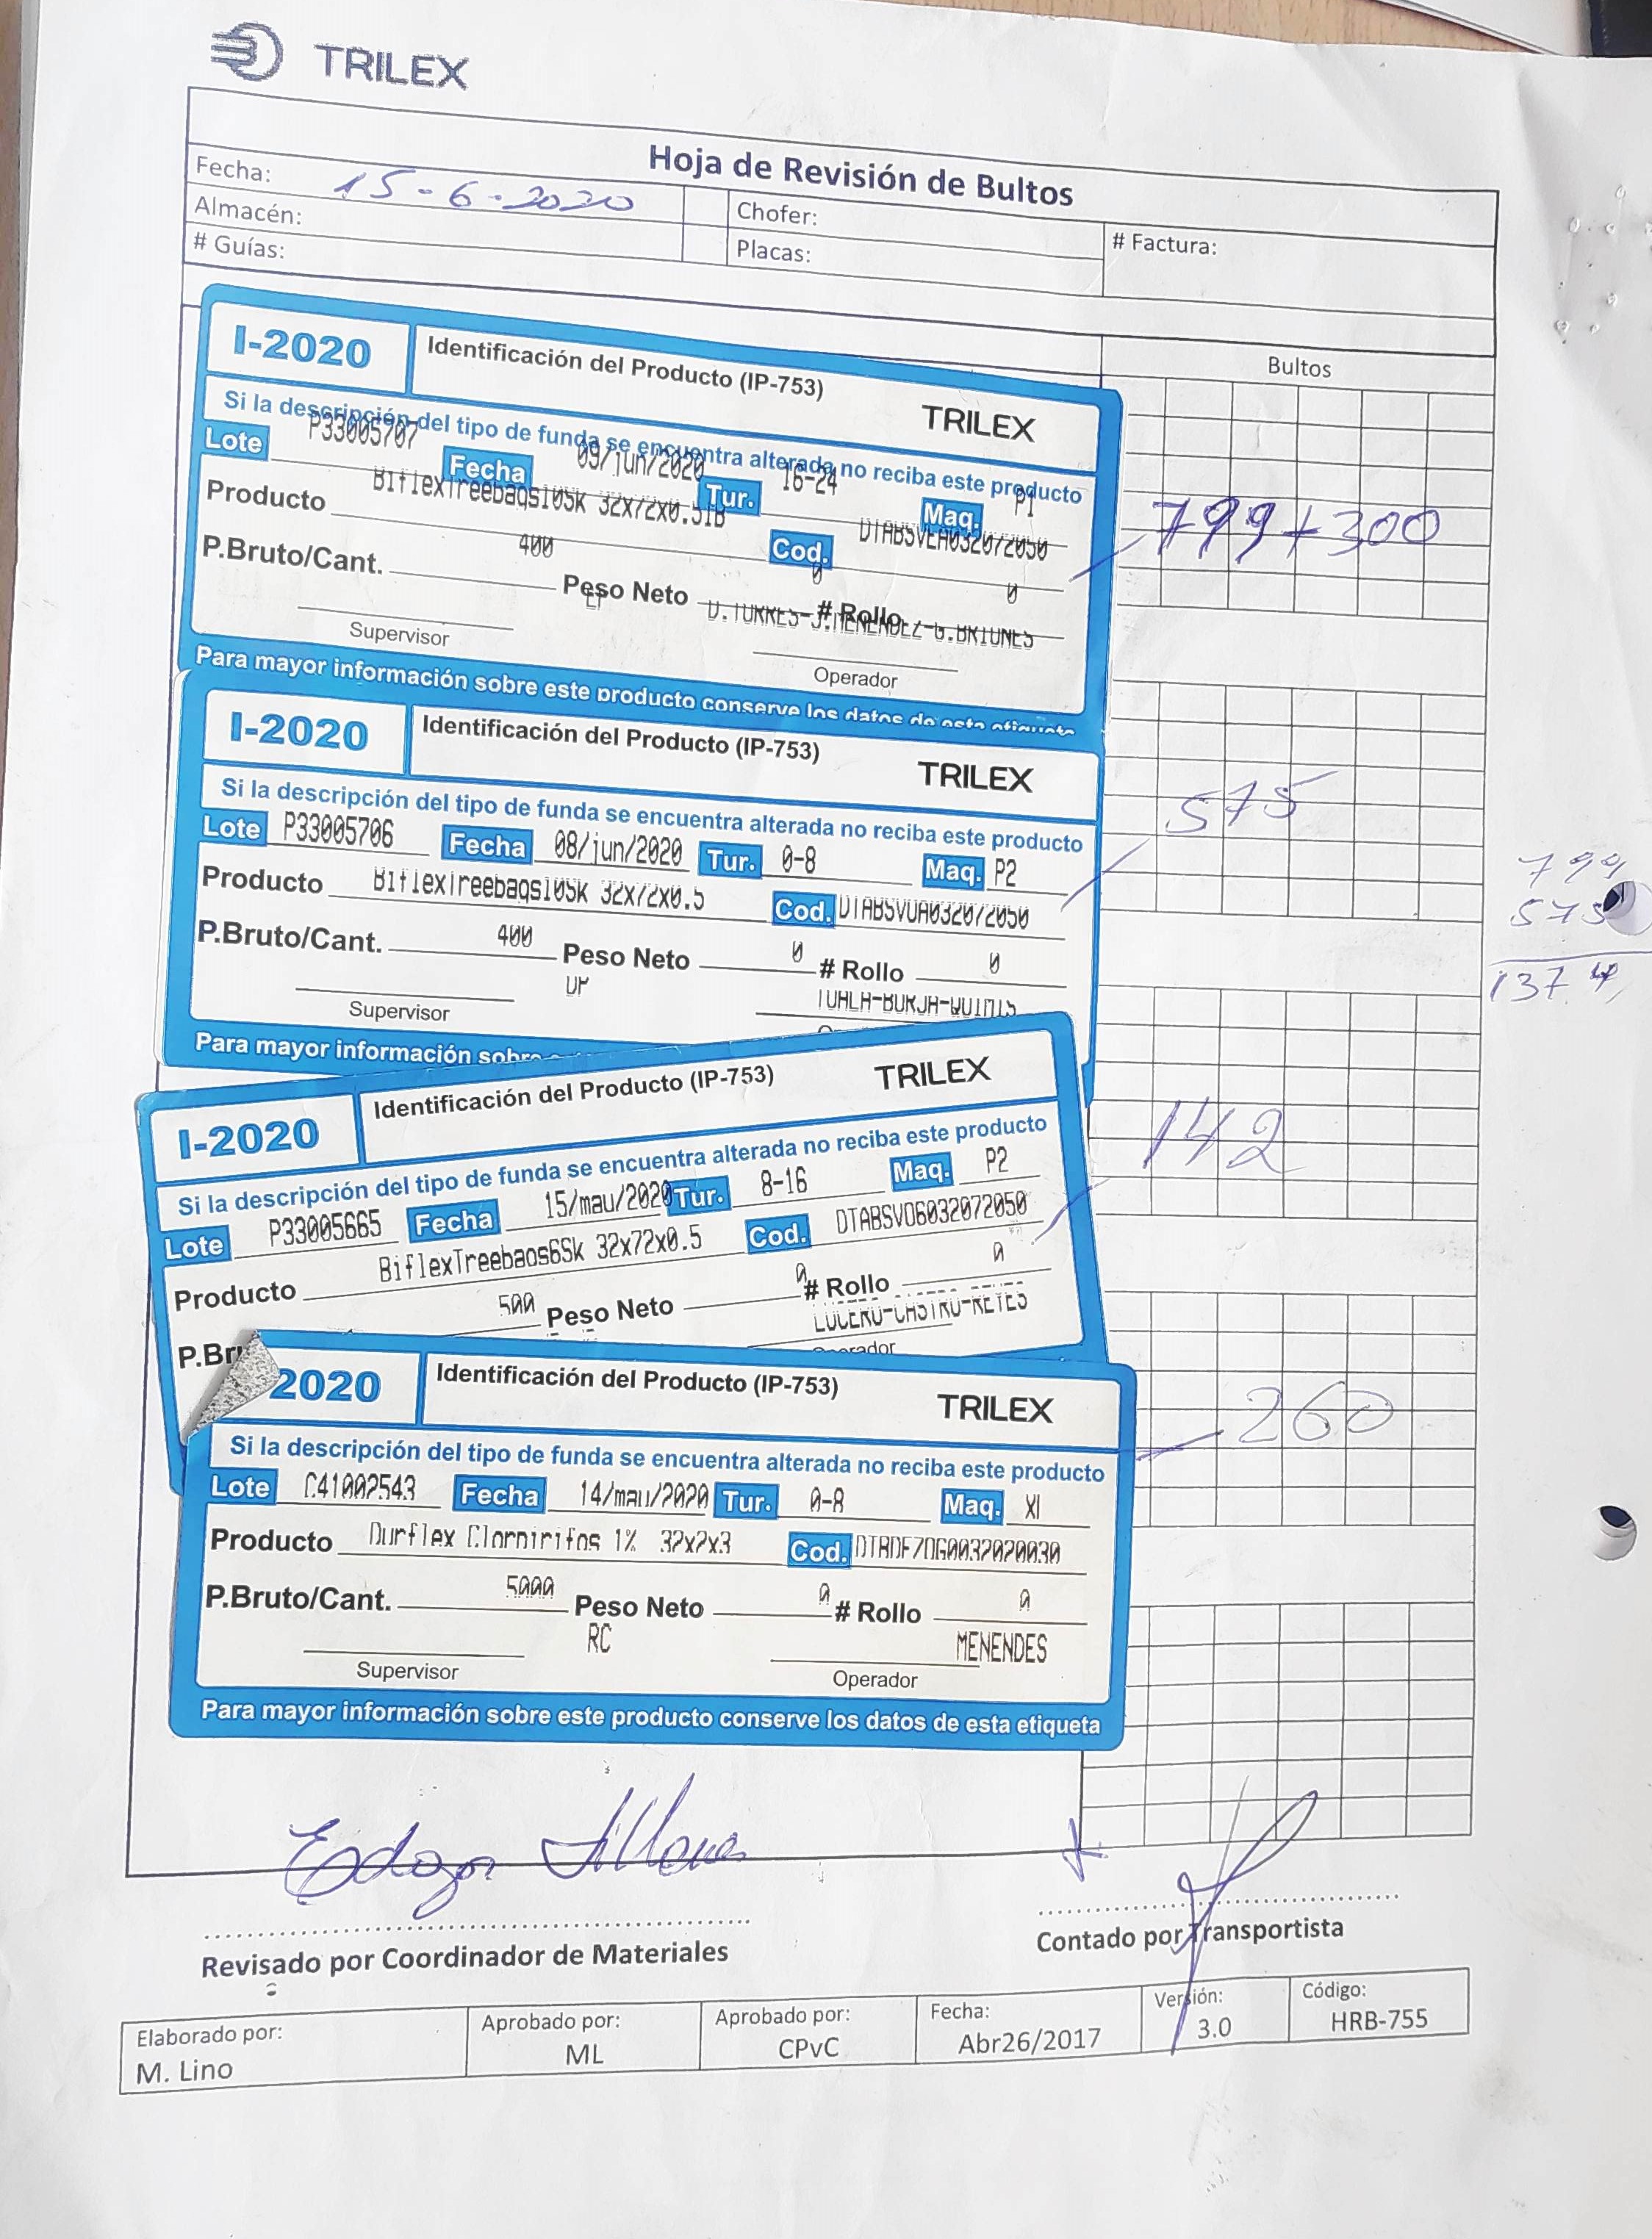 TRILEX
Hoja de Revisión de Bultos
Fecha: 15-6-2020
Almacén:
Chofer:
# Factura:
# Guías:
Placas:
Bultos
I-2020 Identificación del Producto (IP-753) TRILEX
Si la descripción del tipo de funda se encuentra alterada no reciba este producto
Lote P33005707 Fecha 09/jun/2020 Tur. 16-24 Maq. P1
Producto BiflexTreebags105k 32x72x0.5 Cod.
799+300
P.Bruto/Cant. 400 Peso Neto 0 # Rollo 0
D.TORRES-J.MENENDEZ-G.BRIONES
Supervisor Operador
Para mayor información sobre este producto conserve los datos de esta etiqueta
I-2020 Identificación del Producto (IP-753) TRILEX
Si la descripción del tipo de funda se encuentra alterada no reciba este producto
575
Lote P33005706 Fecha 08/jun/2020 Tur. 0-8 Maq. P2
Producto BiflexTreebags105k 32x72x0.5 Cod. DTABSVUA032072050
P.Bruto/Cant. 400 Peso Neto 0 # Rollo 0
Supervisor
Para mayor información sobre
799
575
1374
I-2020 Identificación del Producto (IP-753) TRILEX
Si la descripción del tipo de funda se encuentra alterada no reciba este producto
142
Lote P33005665 Fecha 15/may/2020 Tur. 8-16 Maq. P2
Producto BiflexTreebags65k 32x72x0.5 Cod. DTABSVO6032072050
P.Br 500 Peso Neto 0 # Rollo 0
LUCERO-CASTRO-REYES
2020 Identificación del Producto (IP-753) TRILEX
260
Si la descripción del tipo de funda se encuentra alterada no reciba este producto
Lote C41002543 Fecha 14/may/2020 Tur. 0-8 Maq. XI
Producto Durflex Clorpirifos 1% 32x2x3 Cod. DTBDF7DG0032020030
P.Bruto/Cant. 5000 Peso Neto 0 # Rollo 0
RC MENENDES
Supervisor Operador
Para mayor información sobre este producto conserve los datos de esta etiqueta
Revisado por Coordinador de Materiales
Contado por Transportista
Elaborado por: M. Lino
Aprobado por: ML
Aprobado por: CPvC
Fecha: Abr26/2017
Versión: 3.0
Código: HRB-755